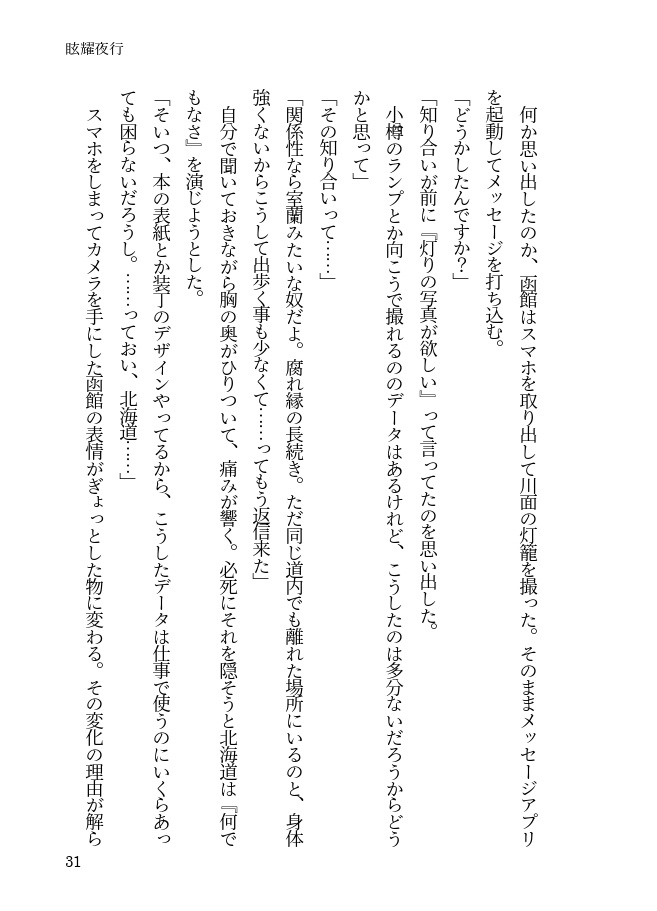 眩耀夜行
　何か思い出したのか、函館はスマホを取り出して川面の灯籠を撮った。そのままメッセージアプリ
を起動してメッセージを打ち込む。
「どうかしたんですか？」
「知り合いが前に『灯りの写真が欲しい』って言ってたのを思い出した。
　小樽のランプとか向こうで撮れるののデータはあるけれど、こうしたのは多分ないだろうからどう
かと思って」
「その知り合いって……」
「関係性なら室蘭みたいな奴だよ。腐れ縁の長続き。ただ同じ道内でも離れた場所にいるのと、身体
強くないからこうして出歩く事も少なくて……ってもう返信来た」
　自分で聞いておきながら胸の奥がひりついて、痛みが響く。必死にそれを隠そうと北海道は『何で
もなさ』を演じようとした。
「そいつ、本の表紙とか装丁のデザインやってるから、こうしたデータは仕事で使うのにいくらあっ
ても困らないだろうし。……っておい、北海道……」
　スマホをしまってカメラを手にした函館の表情がぎょっとした物に変わる。その変化の理由が解ら
31